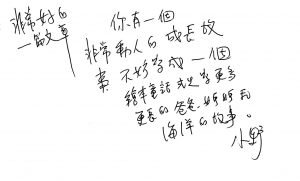 非常好的
一篇文章
你有一個
非常動人的成長故
事 不妨寫成一個
繪本童話 寫更多
更長的爸爸、媽媽和
海洋的故事。
小野